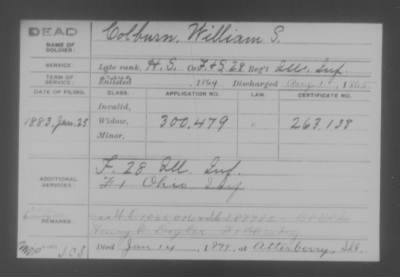 DEAD
NAME OF SOLDIER:
Colburn, William S.
SERVICE:
Late rank, H.S. Co. F.&S. 28 Reg't Ill. Inf.
TERM OF SERVICE:
Enlisted , 1864 Discharged , 1865
DATE OF FILING. CLASS. APPLICATION NO. LAW. CERTIFICATE NO.
Invalid,
1883, Jan. 25 Widow, 300,479 " 263,138
Minor,
ADDITIONAL SERVICES:
F. 28 Ill. Inf.
Ohio Inf.
REMARKS:
Died Jan 14, 1877, at Atterberry, Ill.